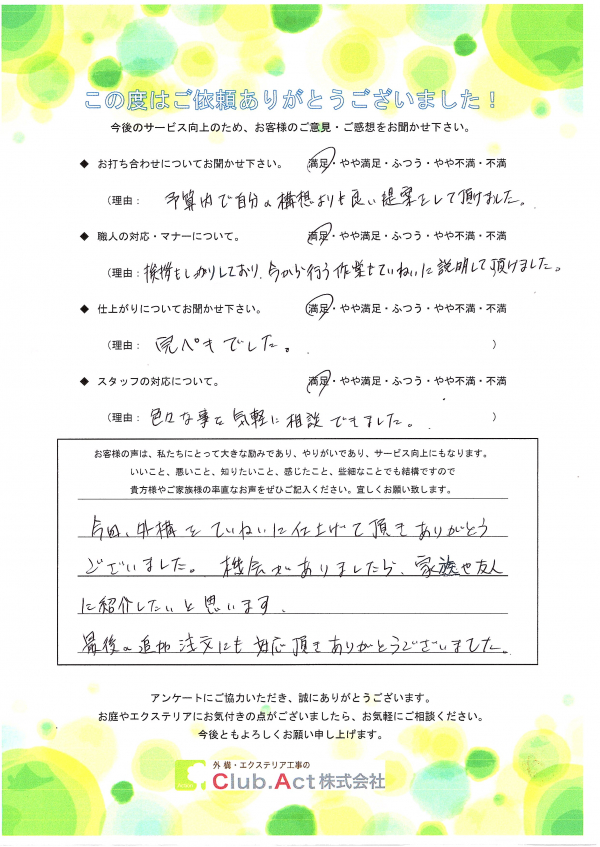 この度はご依頼ありがとうございました!
今後のサービス向上のため、お客様のご意見・ご感想をお聞かせ下さい。
◆ お打ち合わせについてお聞かせ下さい。 満足・やや満足・ふつう・やや不満・不満
(理由: 予算内で自分の構想よりも良い提案をして頂けました。
◆ 職人の対応・マナーについて。 満足・やや満足・ふつう・やや不満・不満
(理由: 挨拶もしっかりしており、今から行う作業もていねいに説明して頂けました。
◆ 仕上がりについてお聞かせ下さい。 満足・やや満足・ふつう・やや不満・不満
(理由: 完ペキでした。 )
◆ スタッフの対応について。 満足・やや満足・ふつう・やや不満・不満
(理由: 色々な事を気軽に相談できました。 )
お客様の声は、私たちにとって大きな励みであり、やりがいであり、サービス向上にもなります。
いいこと、悪いこと、知りたいこと、感じたこと、些細なことでも結構ですので
貴方様やご家族様の率直なお声をぜひご記入ください。宜しくお願い致します。
今回、外構をていねいに仕上げて頂きありがとう
ございました。機会がありましたら、家族や友人
に紹介したいと思います。
最後の追加注文にも対応頂きありがとうございました。
アンケートにご協力いただき、誠にありがとうございます。
お庭やエクステリアにお気付きの点がございましたら、お気軽にご相談ください。
今後ともよろしくお願い申し上げます。
外構・エクステリア工事の
Club.Act株式会社